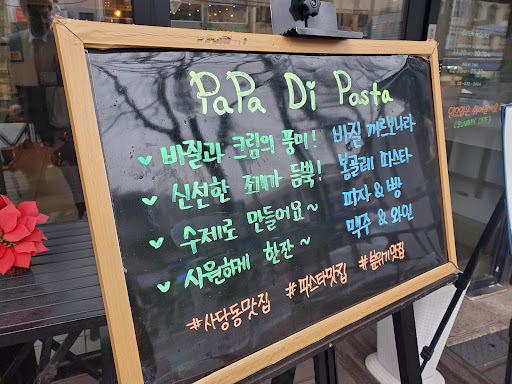 PaPa Di Pasta
♥ 바질과 크림의 풍미! 바질 까르보나라
♥ 신선한 조개가 듬뿍! 봉골레 파스타
♥ 수제로 만들어요~ 피자 & 빵
♥ 시원하게 한잔~ 맥주 & 와인
#사당동맛집 #파스타맛집 #분위기맛집